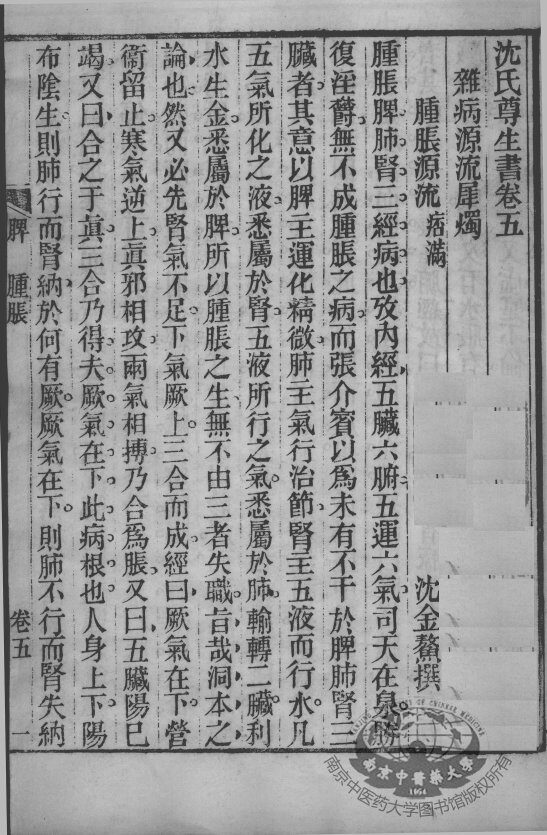 沈氏尊生書卷五
雜病源流犀燭
腫脹源流 痞滿
沈金鰲撰
腫脹脾肺腎三經病也攷內經五臟六腑五運六氣司天在泉勝
復淫鬱無不成腫脹之病而張介賓以爲未有不干於脾肺腎三
臟者其意以脾主運化精微肺主氣行治節腎主五液而行水凡
五氣所化之液悉屬於腎五液所行之氣悉屬於肺輸轉二臟利
水生金悉屬於脾所以腫脹之生無不由三者失職旨哉洞本之
論也然又必先腎氣不足下氣厥上三合而成經曰厥氣在下營
衞留止寒氣逆上眞邪相攻兩氣相搏乃合爲脹又曰五臟陽已
竭又曰合之于眞三合乃得夫厥氣在下此病根也人身上下陽
布陰生則肺行而腎納於何有厥厥氣在下則肺不行而腎失納
脾 腫脹
卷五
一
南京中醫藥大學
1954
南京中医药大学图书馆版权所有